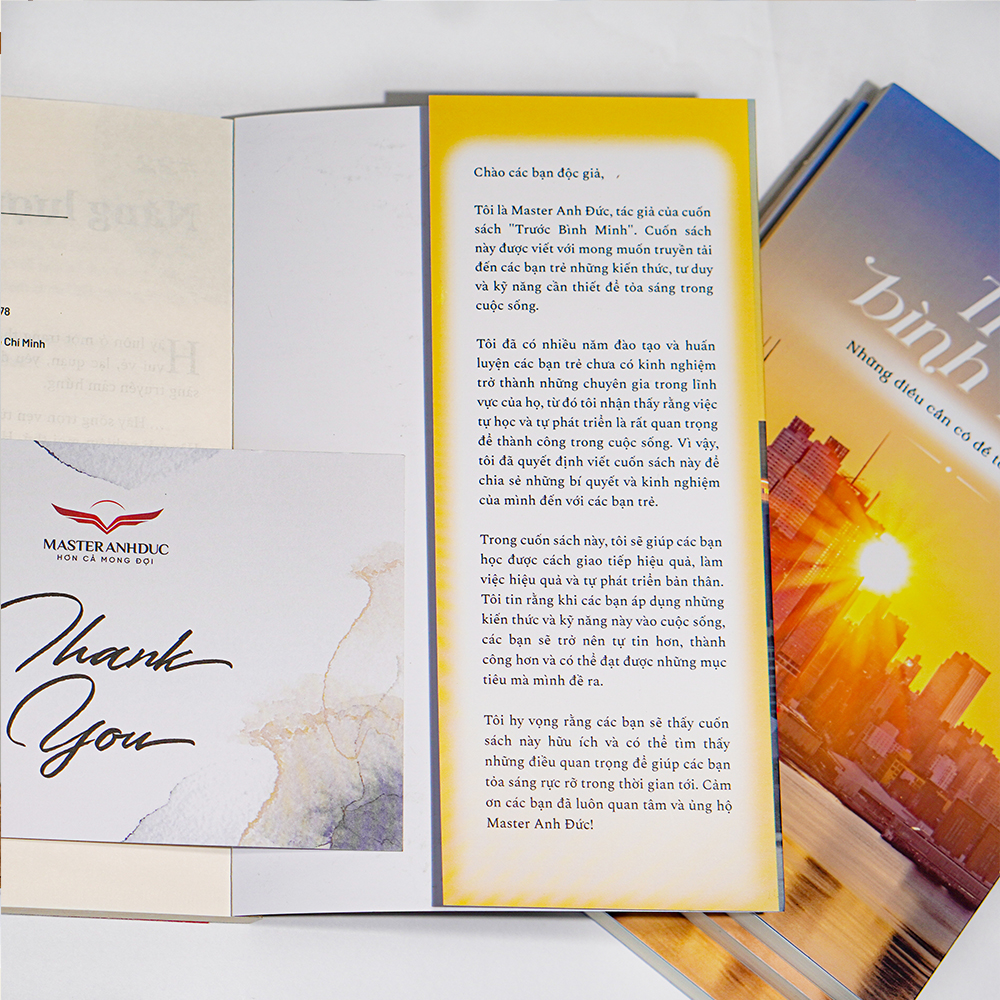 78
Chí Minh
MASTER ANH DUC
HƠN CẢ MONG ĐỢI
Thank
You
Chào các bạn độc giả,
Tôi là Master Anh Đức, tác giả của cuốn
sách "Trước Bình Minh". Cuốn sách
này được viết với mong muốn truyền tải
đến các bạn trẻ những kiến thức, tư duy
và kỹ năng cần thiết để tỏa sáng trong
cuộc sống.
Tôi đã có nhiều năm đào tạo và huấn
luyện các bạn trẻ chưa có kinh nghiệm
trở thành những chuyên gia trong lĩnh
vực của họ, từ đó tôi nhận thấy rằng việc
tự học và tự phát triển là rất quan trọng
để thành công trong cuộc sống. Vì vậy,
tôi đã quyết định viết cuốn sách này để
chia sẻ những bí quyết và kinh nghiệm
của mình đến với các bạn trẻ.
Trong cuốn sách này, tôi sẽ giúp các bạn
học được cách giao tiếp hiệu quả, làm
việc hiệu quả và tự phát triển bản thân.
Tôi tin rằng khi các bạn áp dụng những
kiến thức và kỹ năng này vào cuộc sống,
các bạn sẽ trở nên tự tin hơn, thành
công hơn và có thể đạt được những mục
tiêu mà mình đề ra.
Tôi hy vọng rằng các bạn sẽ thấy cuốn
sách này hữu ích và có thể tìm thấy
những điều quan trọng để giúp các bạn
tỏa sáng rực rỡ trong thời gian tới. Cảm
ơn các bạn đã luôn quan tâm và ủng hộ
Master Anh Đức!
bình
Những điều cần có để